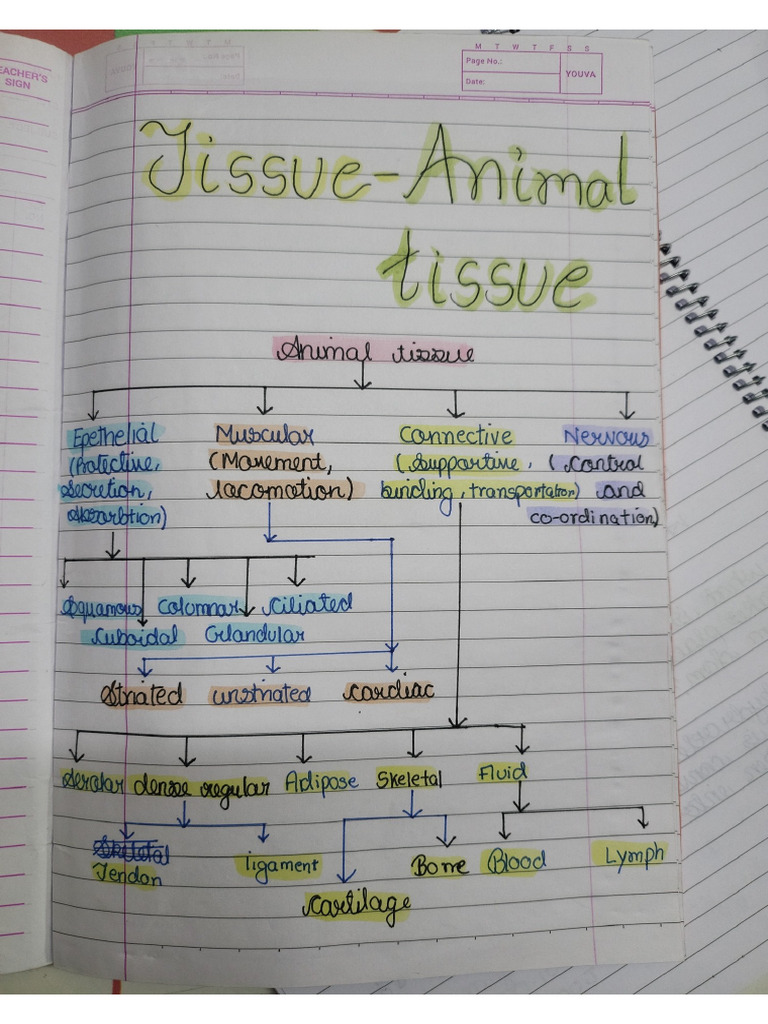 TEACHER'S
SIGN
M T W T F S S
Page No.:
Date:
YOUVA
Tissue-Animal
tissue
Animal tissue
Epethelial
(Protective,
secretion,
Muscular
(Movement,
locomotion)
Connective
(supportive,
binding, transportation)
Nervous
(control
and
co-ordination)
squamous columnar ciliated
cuboidal Glandular
striated unstriated cardiac
dense regular Adipose Skeletal Fluid
Tendon ligament Bone Blood Lymph
cartilage